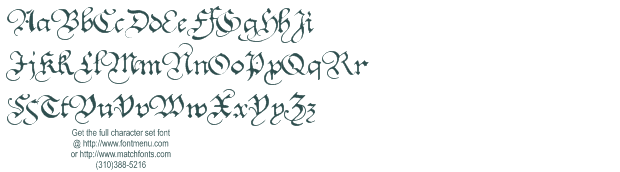 AaBbCcDdEeFfGgHhIi
JjKkLlMmNnOoPpQqRr
SsTtUuVvWwXxYyZz
Get the full character set font
@ http://www.fontmenu.com
or http://www.matchfonts.com
(310)388-5216